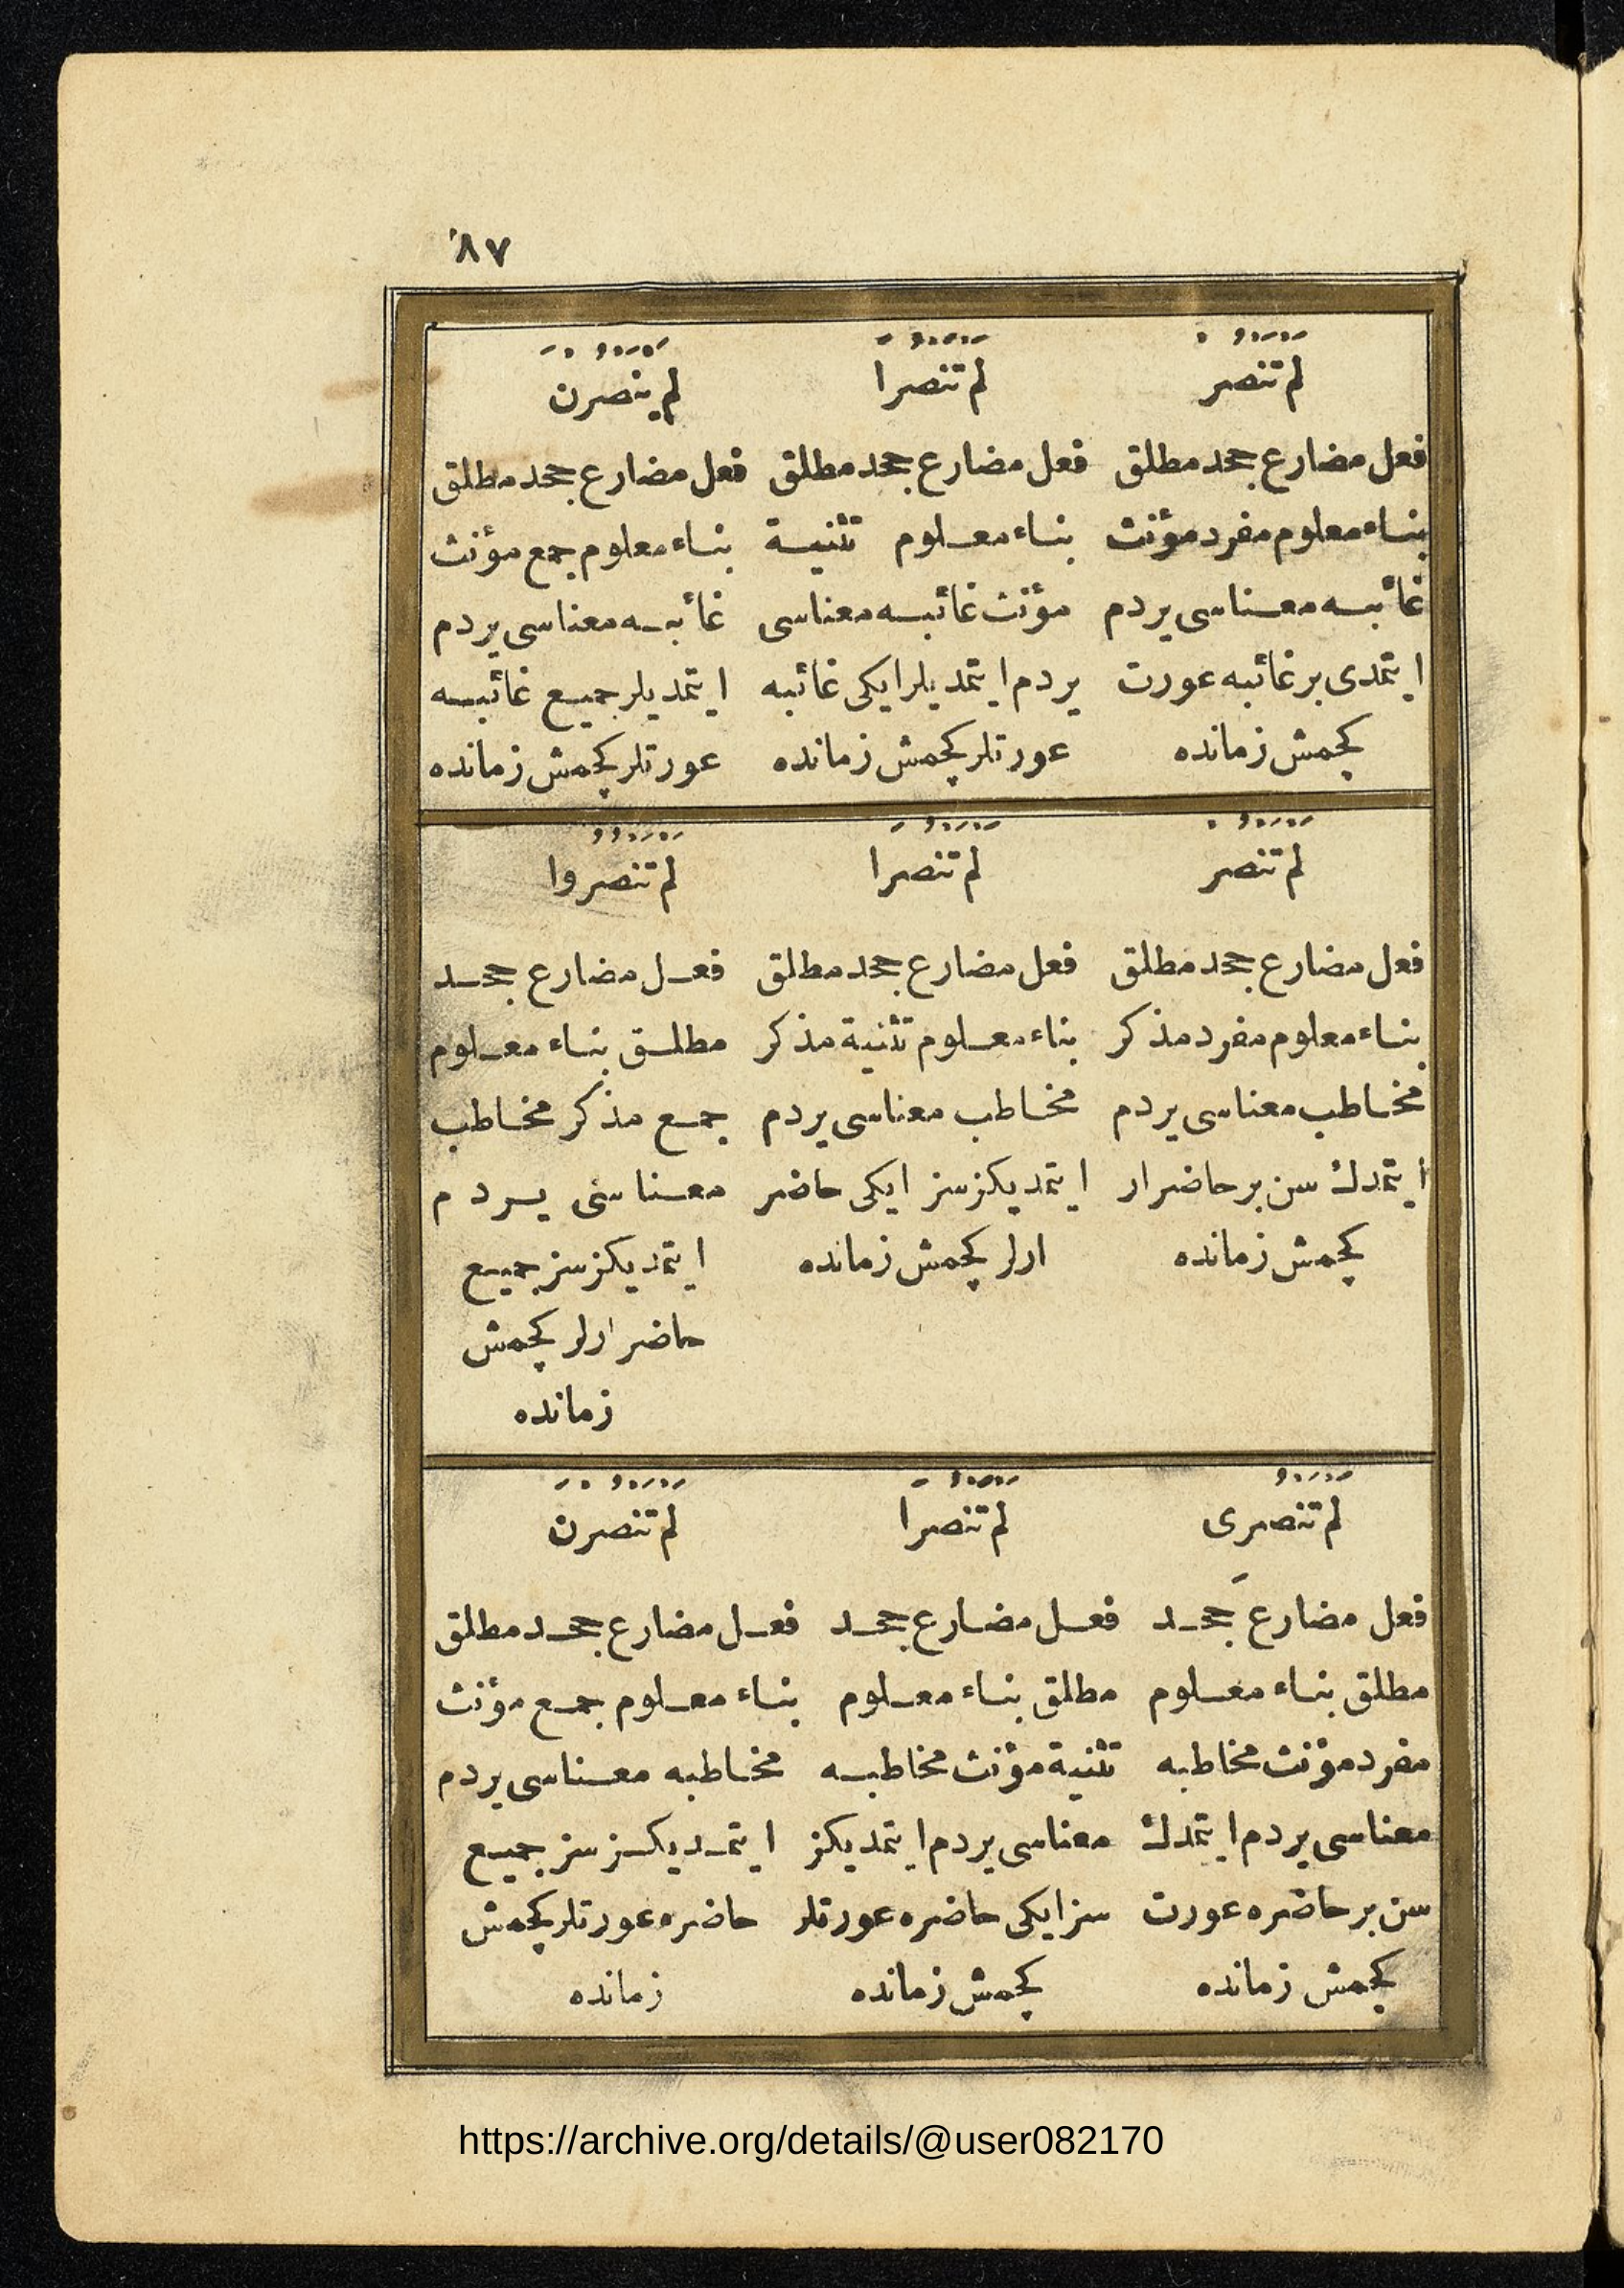 ٨٧
لَمْ تَنْصُرْ
فعل مضارع جحد مطلق
بناء معلوم مفرد مؤنث
غائبه معناسی یردم
ایتمدی بر غائبه عورت
کچمش زمانده
لَمْ تَنْصُرَا
فعل مضارع جحد مطلق
بناء معلوم تثنیة
مؤنث غائبه معناسی
یردم ایتمدیلر ایکی غائبه
عورتلر کچمش زمانده
لَمْ یَنْصُرْنَ
فعل مضارع جحد مطلق
بناء معلوم جمع مؤنث
غائبه معناسی یردم
ایتمدیلر جمیع غائبه
عورتلر کچمش زمانده
لَمْ تَنْصُرْ
فعل مضارع جحد مطلق
بناء معلوم مفرد مذکر
مخاطب معناسی یردم
ایتمدك سن بر حاضر ار
کچمش زمانده
لَمْ تَنْصُرَا
فعل مضارع جحد مطلق
بناء معلوم تثنیة مذکر
مخاطب معناسی یردم
ایتمدیکز سز ایکی حاضر
ارلر کچمش زمانده
لَمْ تَنْصُرُوا
فعل مضارع جحد
مطلق بناء معلوم
جمع مذکر مخاطب
معناسی یردم
ایتمدیکز سز جمیع
حاضر ارلر کچمش
زمانده
لَمْ تَنْصُرِی
فعل مضارع جَحد
مطلق بناء معلوم
مفرد مؤنث مخاطبه
معناسی یردم ایتمدك
سن بر حاضره عورت
کچمش زمانده
لَمْ تَنْصُرَا
فعل مضارع جحد
مطلق بناء معلوم
تثنیة مؤنث مخاطبه
معناسی یردم ایتمدیکز
سز ایکی حاضره عورتلر
کچمش زمانده
لَمْ تَنْصُرْنَ
فعل مضارع جحد مطلق
بناء معلوم جمع مؤنث
مخاطبه معناسی یردم
ایتمدیکز سز جمیع
حاضره عورتلر کچمش
زمانده
https://archive.org/details/@user082170